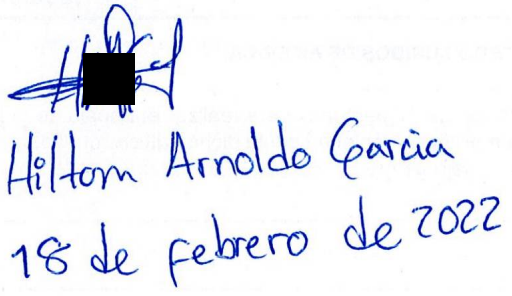 Hiltom Arnoldo Garcia
18 de febrero de 2022